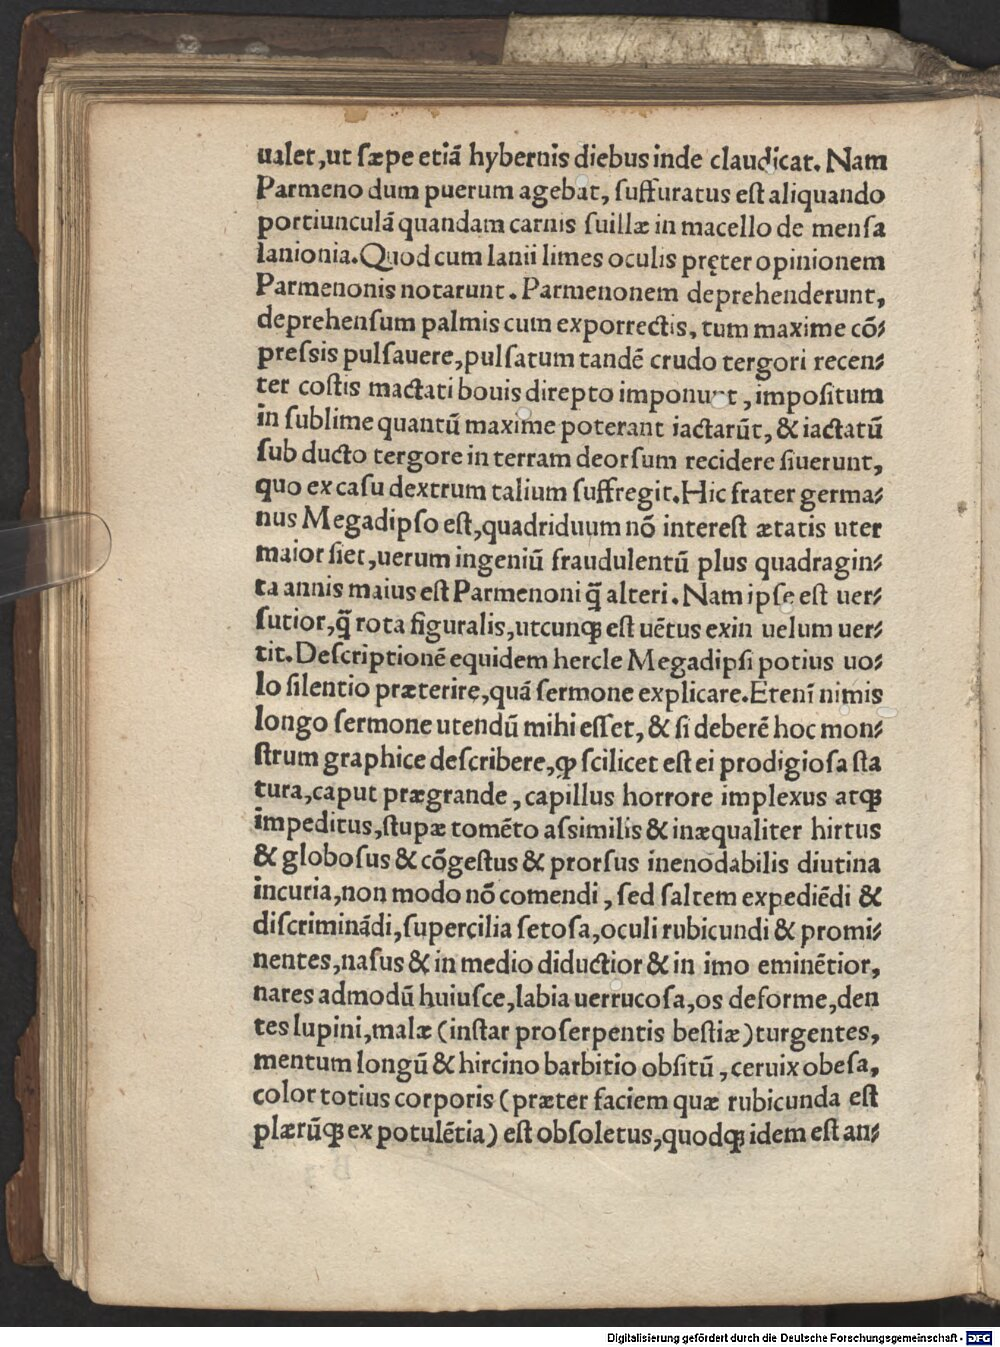 ualet,ut ſæpe etiā hybernis diebus inde claudicat. Nam
Parmeno dum puerum agebat, ſuffuratus eſt aliquando
portiunculā quandam carnis ſuillæ in macello de menſa
lanionia. Quod cum lanii limes oculis pręter opinionem
Parmenonis notarunt. Parmenonem deprehenderunt,
deprehenſum palmis cum exporrectis, tum maxime cō⸗
preſsis pulſauere, pulſatum tandē crudo tergori recen⸗
ter coſtis mactati bouis direpto imponunt, impoſitum
in ſublime quantū maxime poterant iactarūt, & iactatū
ſub ducto tergore in terram deorſum recidere ſiuerunt,
quo ex caſu dextrum talium ſuffregit. Hic frater germa⸗
nus Megadipſo eſt, quadriduum nō intereſt ætatis uter
maior ſiet, uerum ingeniū fraudulentū plus quadragin⸗
ta annis maius eſt Parmenoni q̄ alteri. Nam ipſe eſt uer⸗
ſutior, q̄ rota figuralis, utcunqꝫ eſt uētus exin uelum uer⸗
tit. Deſcriptionē equidem hercle Megadipſi potius uo⸗
lo ſilentio præterire, quā ſermone explicare. Etenī nimis
longo ſermone utendū mihi eſſet, & ſi deberē hoc mon⸗
ſtrum graphice deſcribere, ꝙ ſcilicet eſt ei prodigioſa ſta
tura, caput prægrande, capillus horrore implexus atqꝫ
impeditus, ſtupæ tomēto aſsimilis & inæqualiter hirtus
& globoſus & cōgeſtus & prorſus inenodabilis diutina
incuria, non modo nō comendi, ſed ſaltem expediēdi &
diſcrimināndi, ſupercilia ſetoſa, oculi rubicundi & promi⸗
nentes, naſus & in medio diductior & in imo eminētior,
nares admodū huiuſce, labia uerrucoſa, os deforme, den
tes lupini, malæ (inſtar proſerpentis beſtiæ) turgentes,
mentum longū & hircino barbitio obſitū, ceruix obeſa,
color totius corporis (præter faciem quæ rubicunda eſt
plærūqꝫ ex potulētia) eſt obſoletus, quodqꝫ idem eſt an⸗
Digitalisierung gefördert durch die Deutsche Forschungsgemeinschaft - DFG